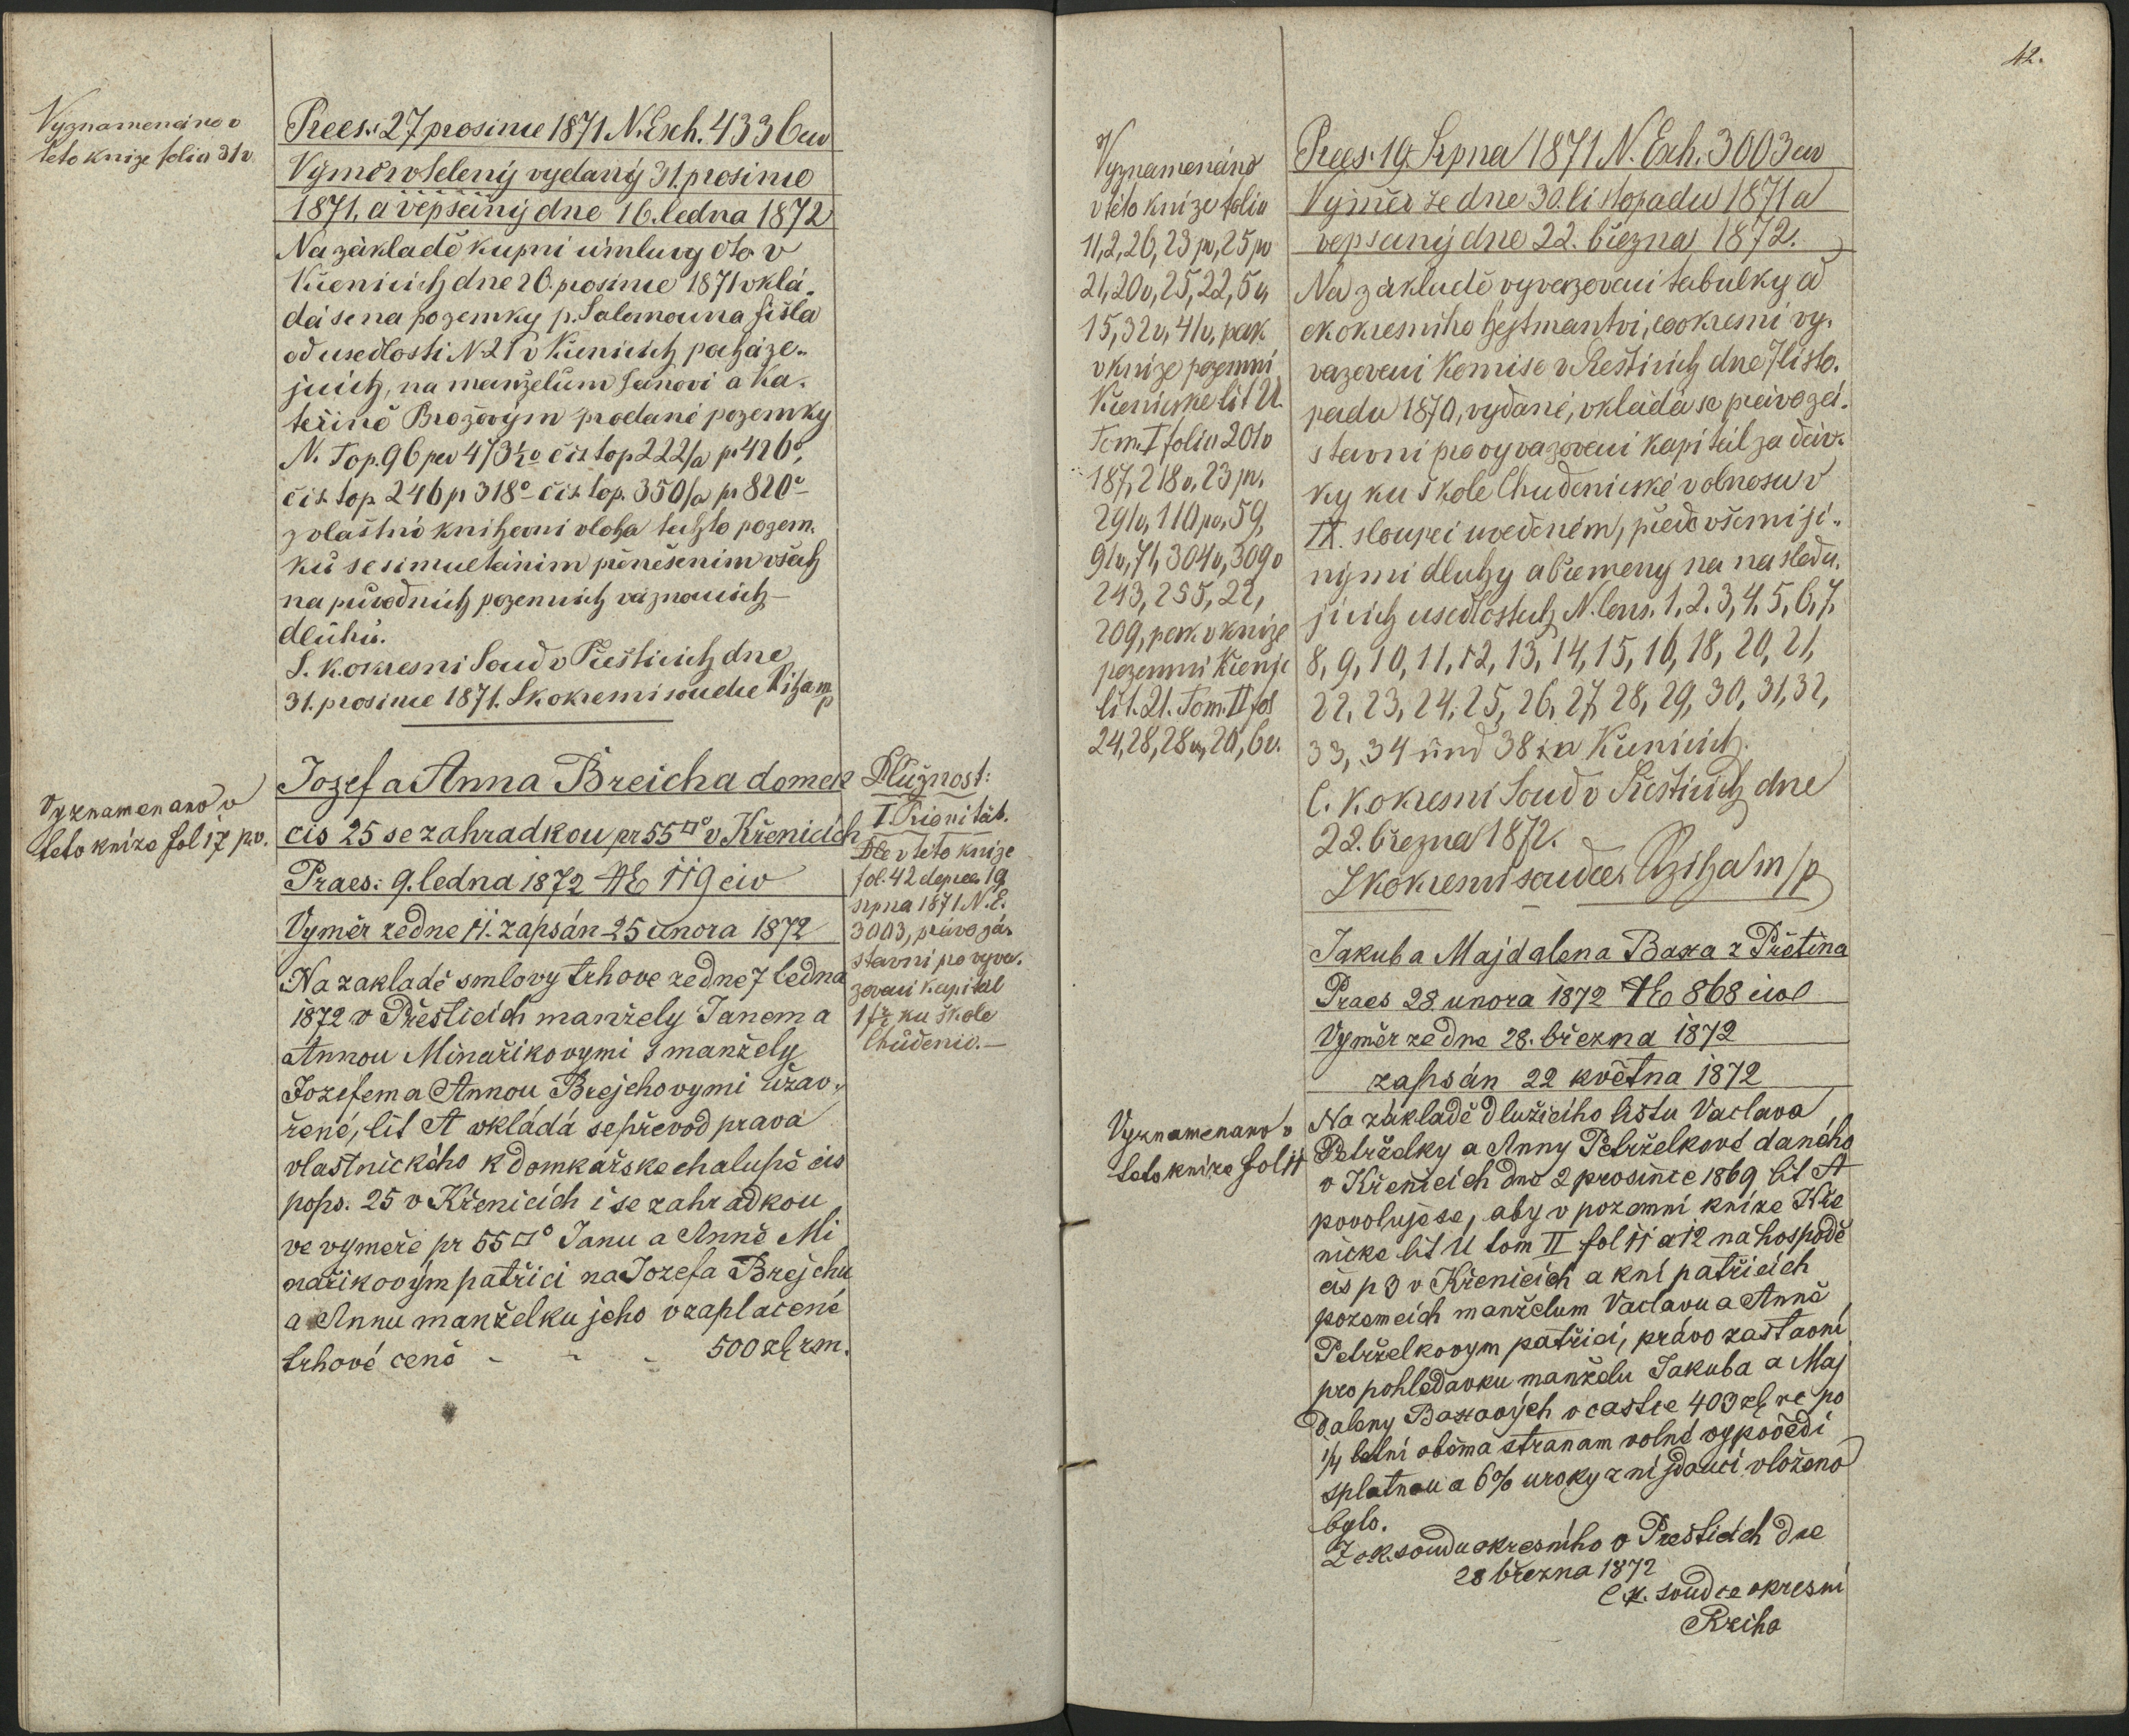 Vyznamenáno v
této knize folia 31v
Prees: 27 prosince 1871 N. Exh. 4336 civ
Výměr vtelený vydaný 31. prosince
1871, a vepsaný dne 16. ledna 1872
Na základě kupní úmluvy dto v
Křenicích dne 20. prosince 1871 vklá-
dá se na pozemky p. Salamouna Fišla
od usedlosti N. 21 v Křenicích pocháze-
jících, na manželům Janovi a Ka-
teřině Brožovým prodané pozemky
N. Top. 96 per 473½° čís top 222/a pr 426°,
čís. top. 246 pr 318° čís. top. 350/a pr 820°
zvlaštní knihovní vloha těchto pozem-
ků se simultáním přenešením všech
na původních pozemcích váznoucích
dluhů.
C. k. okresní Soud v Přešticích dne
31. prosince 1871. C k okresní soudce Říha m/p
Vyznamenano v
teto knize fol 17 pv.
Jozef a Anna Breicha domek
cis 25 se zahradkou pr 55□° v Křenicích
Praes: 9. ledna 1872 NE 119 civ
Vyměr ze dne 11. zapsán 25 února 1872
Na zakladě smlovy trhove ze dne 7 ledna
1872 v Přešticích manžely Janem a
Annou Minařikovymi s manžely
Jozefem a Annou Brejchovymi uzav-
řené, lit A vkládá se převod prava
vlastnického k domkařske chalupě cis
pops. 25 v Křenicích i se zahradkou
ve vymeře pr 55□° Janu a Anně Mi
nařikovým patřici na Jozefa Brejchu
a Annu manželku jeho v zaplacené
trhové ceně - - - 500 zl rm.
Dlužnost:
I Priorität.
Dle v této knize
fol. 42 de praes 19
srpna 1871 N. E.
3003, právo zá-
stavní pro vyva-
zovací kapitál
1 fr ku škole
Chudenic.—
42.
Vyznamenáno
v této knize folio
11, 2, 26, 23 pv, 25 pv
21, 20v, 25, 22, 5v,
15, 32v, 41v, pak
v knize pozemní
Křenické lit U.
Tom. I folio 201v
187, 218v, 23 pv.
291v, 110 pv, 59,
91v, 71, 304v, 309v
243, 255, 22,
209, pak v knize
pozemní Křenic
lit. U. Tom. II fol
24, 28, 28v, 20, 6v.
Prees: 19. Srpna 1871 N. Exh. 3003 civ
Výměr ze dne 30. listopadu 1871 a
vepsaný dne 22. března 1872.
Na základě vyvazovací tabulky od
ck okresního hejtmantví, co okresní vy-
vazovací Komise v Přešticích dne 7 listo-
padu 1870, vydané, vkládá se právo zá-
stavní pro vyvazovací kapitál za dáv-
ky ku škole Chudenické v obnosu v
IX. sloupci uvedeném, přede všemi ji-
nými dluhy a břemeny na násleďu-
jících usedlostech N. Cons. 1, 2, 3, 4, 5, 6, 7,
8, 9, 10, 11, 12, 13, 14, 15, 16, 18, 20, 21,
22, 23, 24, 25, 26, 27, 28, 29, 30, 31, 32,
33, 34 und 38 in Křenicích.
C. K okresní Soud v Přešticích dne
22. března 1872.
C k okresní soudce Říha m/p
Jakub a Majdalena Baxa z Přétina
Praes 28 unora 1872 NE 868 civ
Vyměr ze dne 28. března 1872
zapsán 22 května 1872
Vyznamenano v
teto knize fol 11
Na základě dlužicího listu Vaclava
Petrželky a Anny Petrželkové daného
v Křenicích dne 2 prosince 1869 lit A
povoluje se, aby v pozemní knize Kře
nicke lit U tom II fol 11 a 12 na hospodě
čis p 3 v Křenicích a k ní patřicích
pozemcích manželum Vaclavu a Anně
Petrželkovym patřici, právo zastavní
pro pohledavku manželu Jakuba a Maj
daleny Baxových v častce 403 zl rč po
¼ letní oběma stranam volné vypovědi
splatnou a 6% uroky z ní jdouci vloženo
bylo.
Z ck. soudu okresního v Přešticích dne
28 března 1872
C K. soudce okresní
Rziha